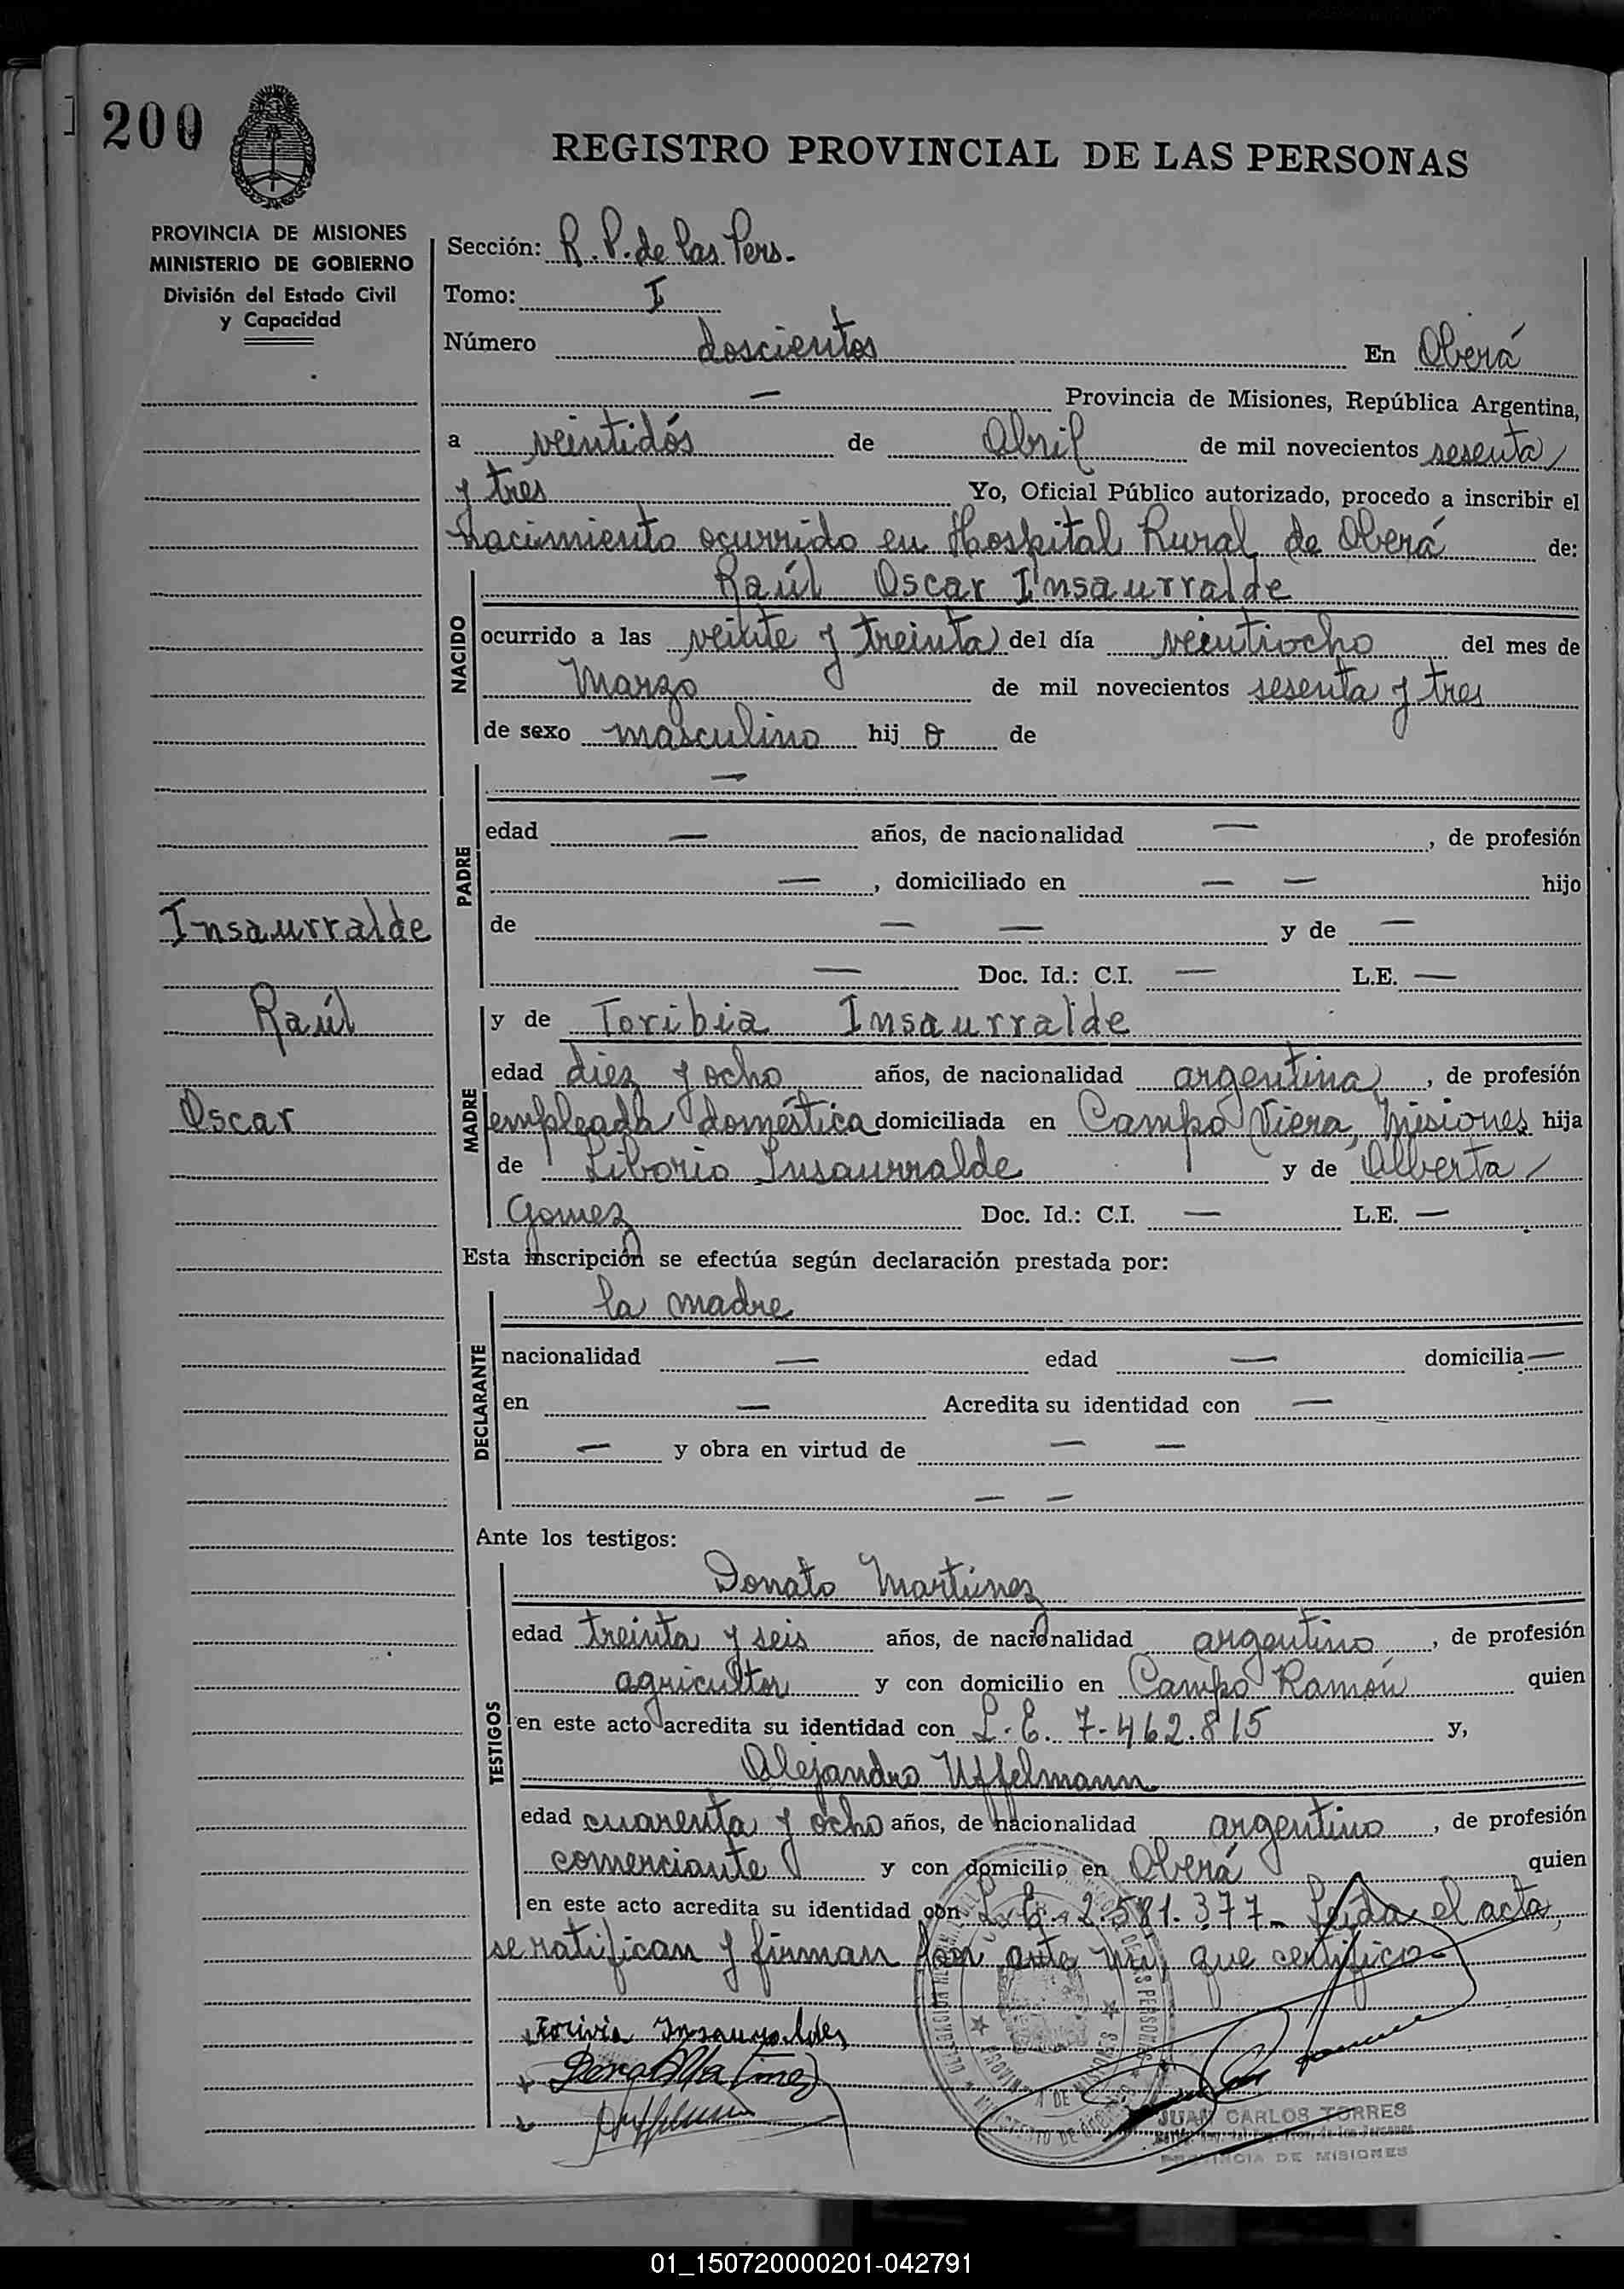 200
REGISTRO PROVINCIAL DE LAS PERSONAS
PROVINCIA DE MISIONES
MINISTERIO DE GOBIERNO
División del Estado Civil
y Capacidad
Sección: R. P. de las Pers.
Tomo: I
Número doscientos En Oberá
— Provincia de Misiones, República Argentina,
a veintidós de Abril de mil novecientos sesenta
y tres Yo, Oficial Público autorizado, procedo a inscribir el
nacimiento ocurrido en Hospital Rural de Oberá de:
NACIDO
Raúl Oscar Insaurralde
ocurrido a las veinte y treinta del día veintiocho del mes de
Marzo de mil novecientos sesenta y tres
de sexo masculino hij o de
PADRE
—
edad — años, de nacionalidad —, de profesión
—, domiciliado en — — hijo
de — — y de —
— Doc. Id.: C.I. — L.E. —
Insaurralde
Raúl
Oscar
MADRE
y de Toribia Insaurralde
edad diez y ocho años, de nacionalidad argentina, de profesión
empleada doméstica domiciliada en Campo Viera, Misiones hija
de Liborio Insaurralde y de Alberta
Gomez Doc. Id.: C.I. — L.E. —
Esta inscripción se efectúa según declaración prestada por:
DECLARANTE
la madre
nacionalidad — edad — domicilia —
en — Acredita su identidad con —
— y obra en virtud de — —
— —
Ante los testigos:
TESTIGOS
Donato Martinez
edad treinta y seis años, de nacionalidad argentino, de profesión
agricultor y con domicilio en Campo Ramón quien
en este acto acredita su identidad con L.E. 7.462.815 y,
Alejandro Uffelmann
edad cuarenta y ocho años, de nacionalidad argentino, de profesión
comerciante y con domicilio en Oberá quien
en este acto acredita su identidad con L.E. 2.581.377 - Leída el acta,
se ratifican y firman por ante mi, que certifico -
JUAN CARLOS TORRES
PROVINCIA DE MISIONES
01_150720000201-042791